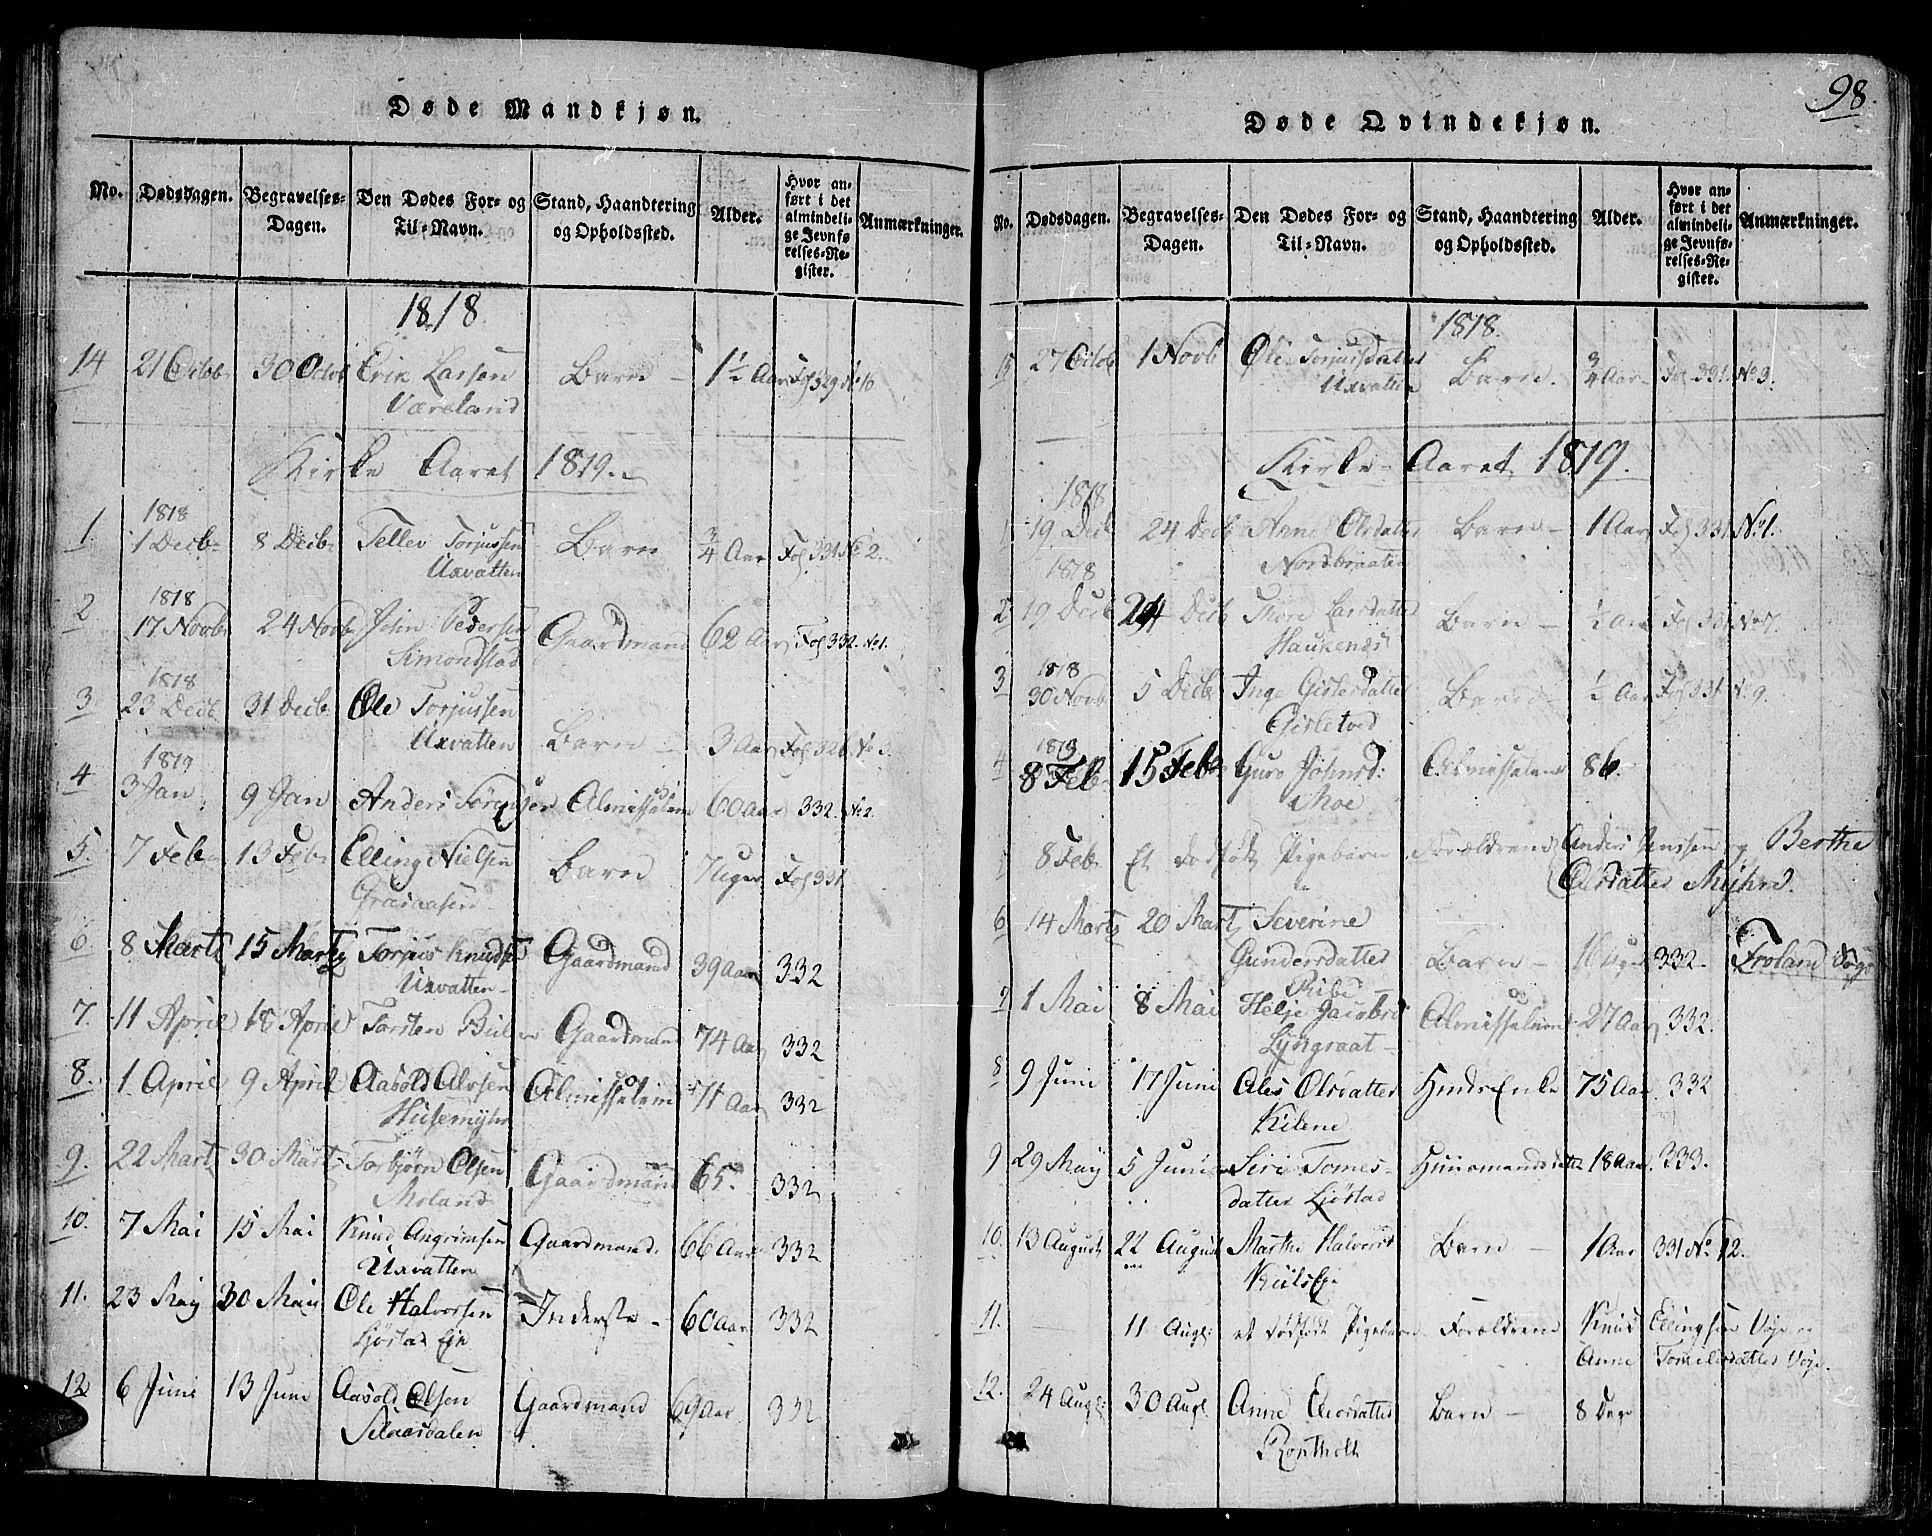 98.
Døde Mandkjøn.
No. Dødsdagen. Begravelses-Dagen. Den Dødes For- og Til-Navn. Stand, Haandtering og Opholdssted. Alder. Hvor anført i det almindelige Jevnførelses-Register. Anmærkninger.
1818
14 21 Octbr 30 Octbr Erik Larsen Barn 1½ Aar Fol 329 No 10
Væreland
Kirke Aaret 1819.
1818
1. 1 Decbr 8 Decbr Tellev Torjussen Barn ¾ Aar Fol 331 No 2.
Uxvatten
1818
2 17 Novbr 24 Novbr John Pedersen Gaardmand 62 Aar Fol 332. No 1.
Simonstad
1818
3 23 Decbr 31 Decbr Ole Torjussen
Uxvatten Barn 3 Aar Fol 326 No 3
1819
4 3 Jan 9 Jan Anders Almisselem 60 Aar 332. No 2.
5. 7 Febr 13 Febr Elling Nielsen Barn 7 Uger Fol 331
6 8 Martz 15 Martz Torjus Knuds Gaardmand 39 Aar 332
Uxvatten
7. 11 April 18 April Torsten Gaardmand 74 Aar 332
8. 1 April 9 April Aasold Alvsen Almisselem 71 Aar 332
Husemyhr
9. 22 Martz 30 Martz Torbjørn Olsen Gaardmand 65. 332
Moland
10. 7 Mai 15 Mai Knud Angrimsen Gaardmand. 66 Aar 332
Uxvatten
11. 23 May 30 Mai Ole Halvorsen Inderste 60 Aar 332
Ljøstad Eje
12 6 Juni 13 Juni Aasold Olsen Gaardmand 69 Aar 332
Selaasdalen
Døde Qvindekjøn.
No. Dødsdagen. Begravelses-Dagen. Den Dødes For- og Til-Navn. Stand, Haandtering og Opholdssted. Alder. Hvor anført i det almindelige Jevnførelses-Register. Anmærkninger.
1818.
27 Octbr 1 Novb Torjusdatter Barn. ¾ Aar Fol 331. No 3.
Uxvatten
Kirke-Aaret 1819.
1818
1 19 Decb 24 Decb Anne Olsdatter Barn 1 Aar Fol 331 No 1.
Nordbraaten
1818
2 19 Decb 24 Decb Larsdatter Barn ½ Aar Fol 331 No 7.
Haukenes
1818
3 30 Novb 5 Decb Inge Gislesdatter Barn ½ Aar Fol 331 No 9.
Gisletved
1819
4 8 Feb 15 Feb Guro Johnsd: Almisselem 86.
Moe
8 Feb Et dødfødt Pigebarn Forældrene Anders Jenssen og Berthe
Olsdatter Myhre.
6 14 Martz 20 Martz Severine
Gundersdatter Barn 16 Uger 332. Froland Sogn
Ribe
1 Mai 8 Mai Helje Jacobsd Almisselem 27 Aar 332.
Lyngraat
8 9 Juni 17 Juni Ales Olsdatter Enke 75 Aar. 332
Kilene
9 29 May 5 Juni Siri Tomes- Huusmandsdatter 18 Aar. 333.
datter Ljøstad
10. 13 August 22 August Marthe Halvorsd Barn 1 Aar 331 No 12.
11. 11 Augl: et dødfødt Pigebarn Forældrene Knud Ellingsen Vøje og
Anne Vøje.
12. 24 Augl: 30 Augl. Anne Barn 8 Dage